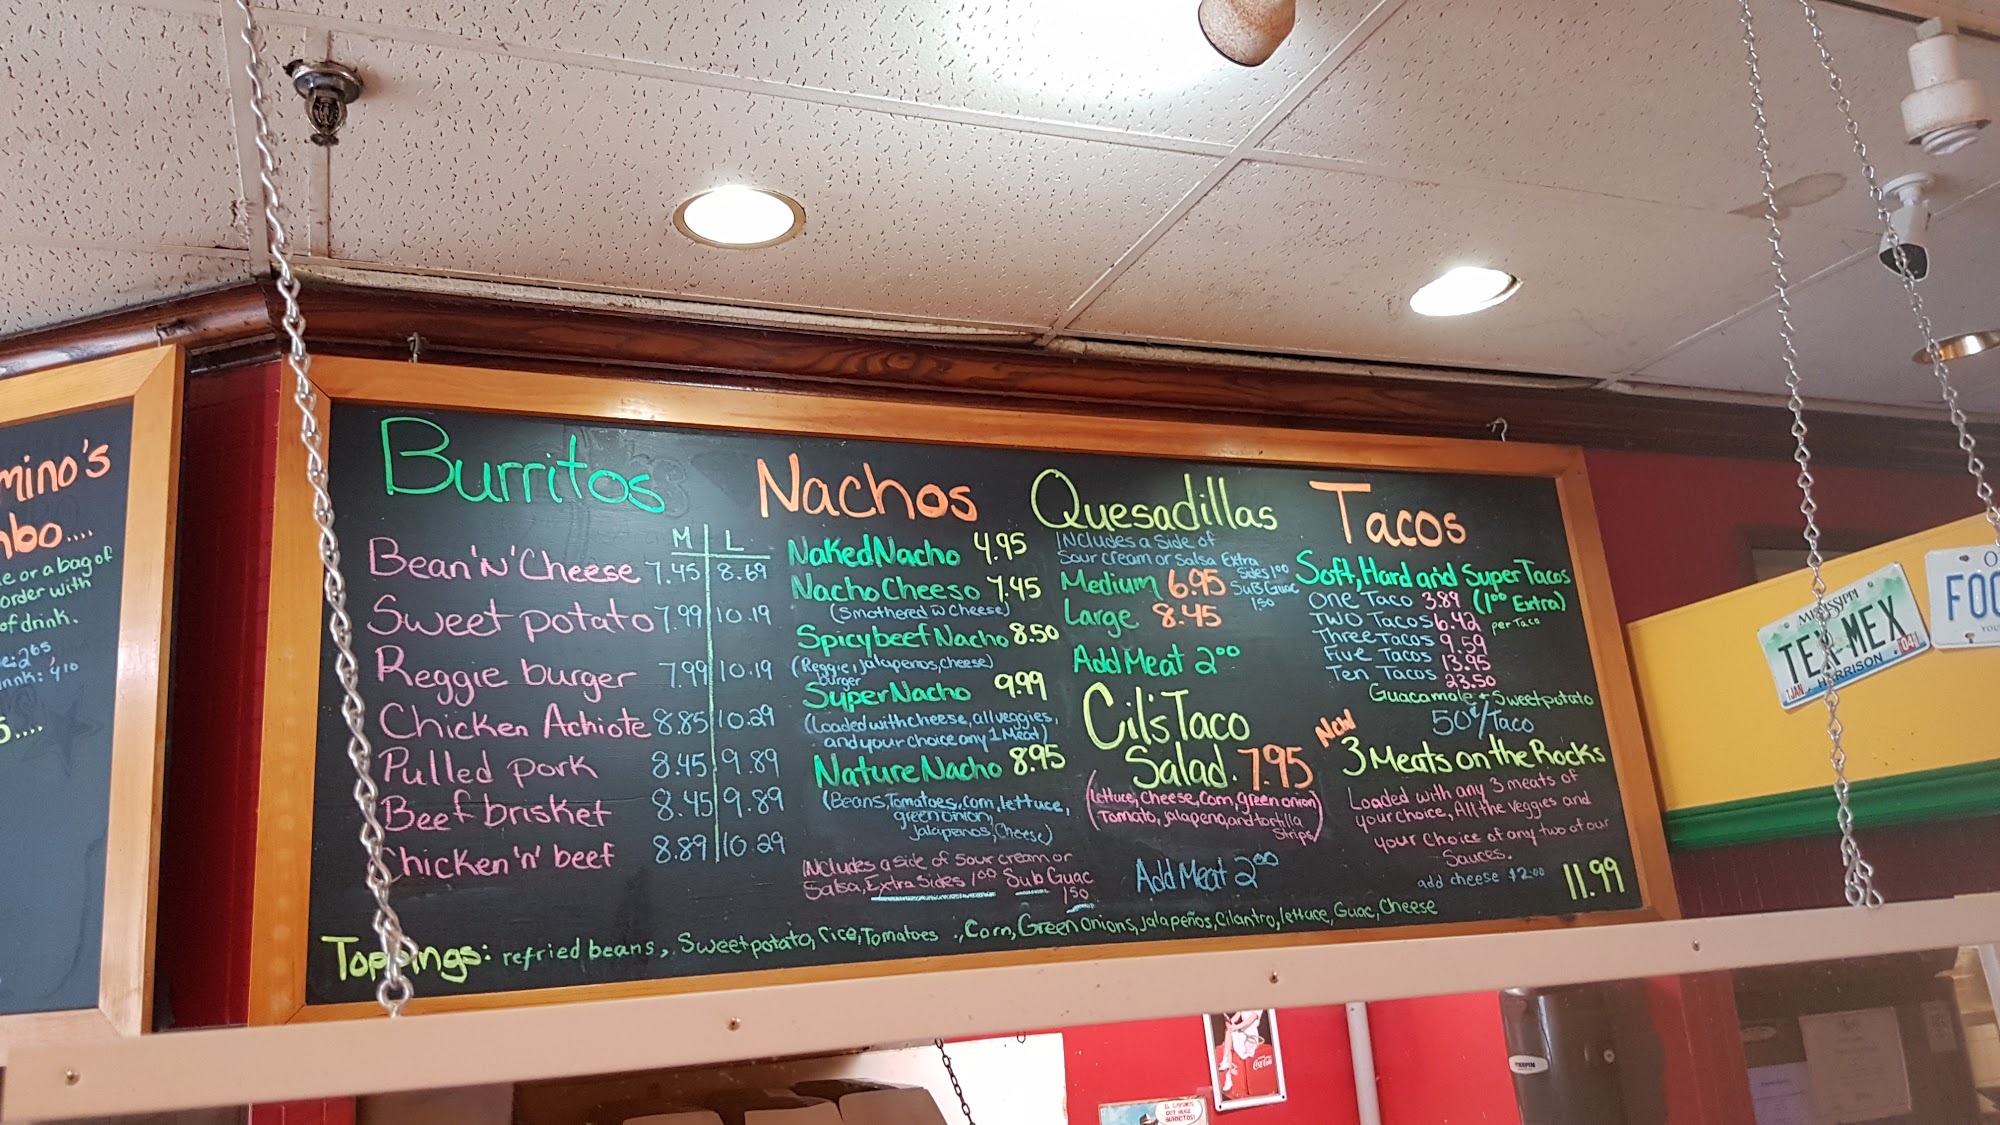 mino's
nbo....
e or a bag of
order with
of drink.
e: 2⁶⁵
ink: 4¹⁰
Burritos
M L
Bean 'N' Cheese 7.45 8.69
Sweet potato 7.99 10.19
Reggie burger 7.99 10.19
Chicken Achiote 8.85 10.29
Pulled pork 8.45 9.89
Beef brisket 8.45 9.89
Chicken 'n' beef 8.89 10.29
Nachos
Naked Nacho 4.95
Nacho Cheeso 7.45
(Smothered w Cheese)
Spicy beef Nacho 8.50
(Reggie, jalapenos, cheese)
burger
Super Nacho 9.99
(Loaded with cheese, all veggies,
and your choice any 1 Meat)
Nature Nacho 8.95
(Beans, Tomatoes, corn, lettuce,
green onion,
jalapenos, Cheese)
INcludes a side of sour cream or
Salsa, Extra Sides 1⁰⁰ Sub Guac
1⁵⁰
Quesadillas
INcludes a Side of
Sour cream or Salsa Extra
Sides 1⁰⁰
Medium 6.95 Sub Guac
1⁵⁰
Large 8.45
Add Meat 2⁰⁰
Cil's Taco
Salad. 7.95
(lettuce, cheese, Corn, green onion
Tomato, jalapeno, and tortilla
Strips)
Add Meat 2⁰⁰
Tacos
Soft, Hard and Super Tacos
One Taco 3.89 (1⁰⁰ Extra)
Two Tacos 6.42 per Taco
Three Tacos 9.59
Five Tacos 13.95
Ten Tacos 23.50
Guacamole + Sweet potato
50¢/Taco
New
3 Meats on the Rocks
Loaded with any 3 meats of
your choice, All the veggies and
your Choice of any two of our
Sauces.
add cheese $2.00 11.99
Toppings: refried beans, Sweet potato, rice, Tomatoes, Corn, Green Onions, jalapeños, Cilantro, lettuce, Guac, Cheese
MISSISSIPPI
TEX MEX
JAN HARRISON 04
FOO
Coca-Cola